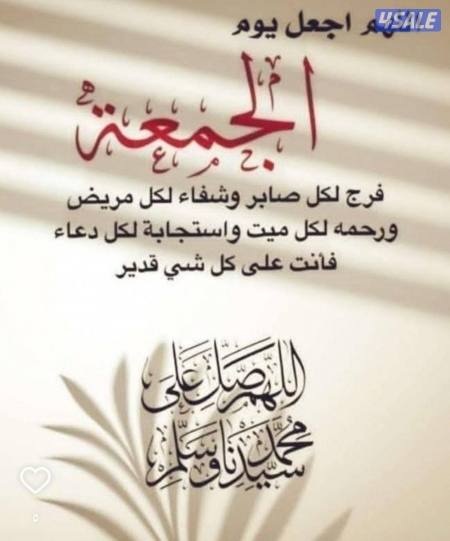 اللهم اجعل يوم
4SALE
الجمعة
فرج لكل صابر وشفاء لكل مريض
ورحمه لكل ميت واستجابة لكل دعاء
فأنت على كل شي قدير
اللهم صل على
سيدنا محمد وسلم